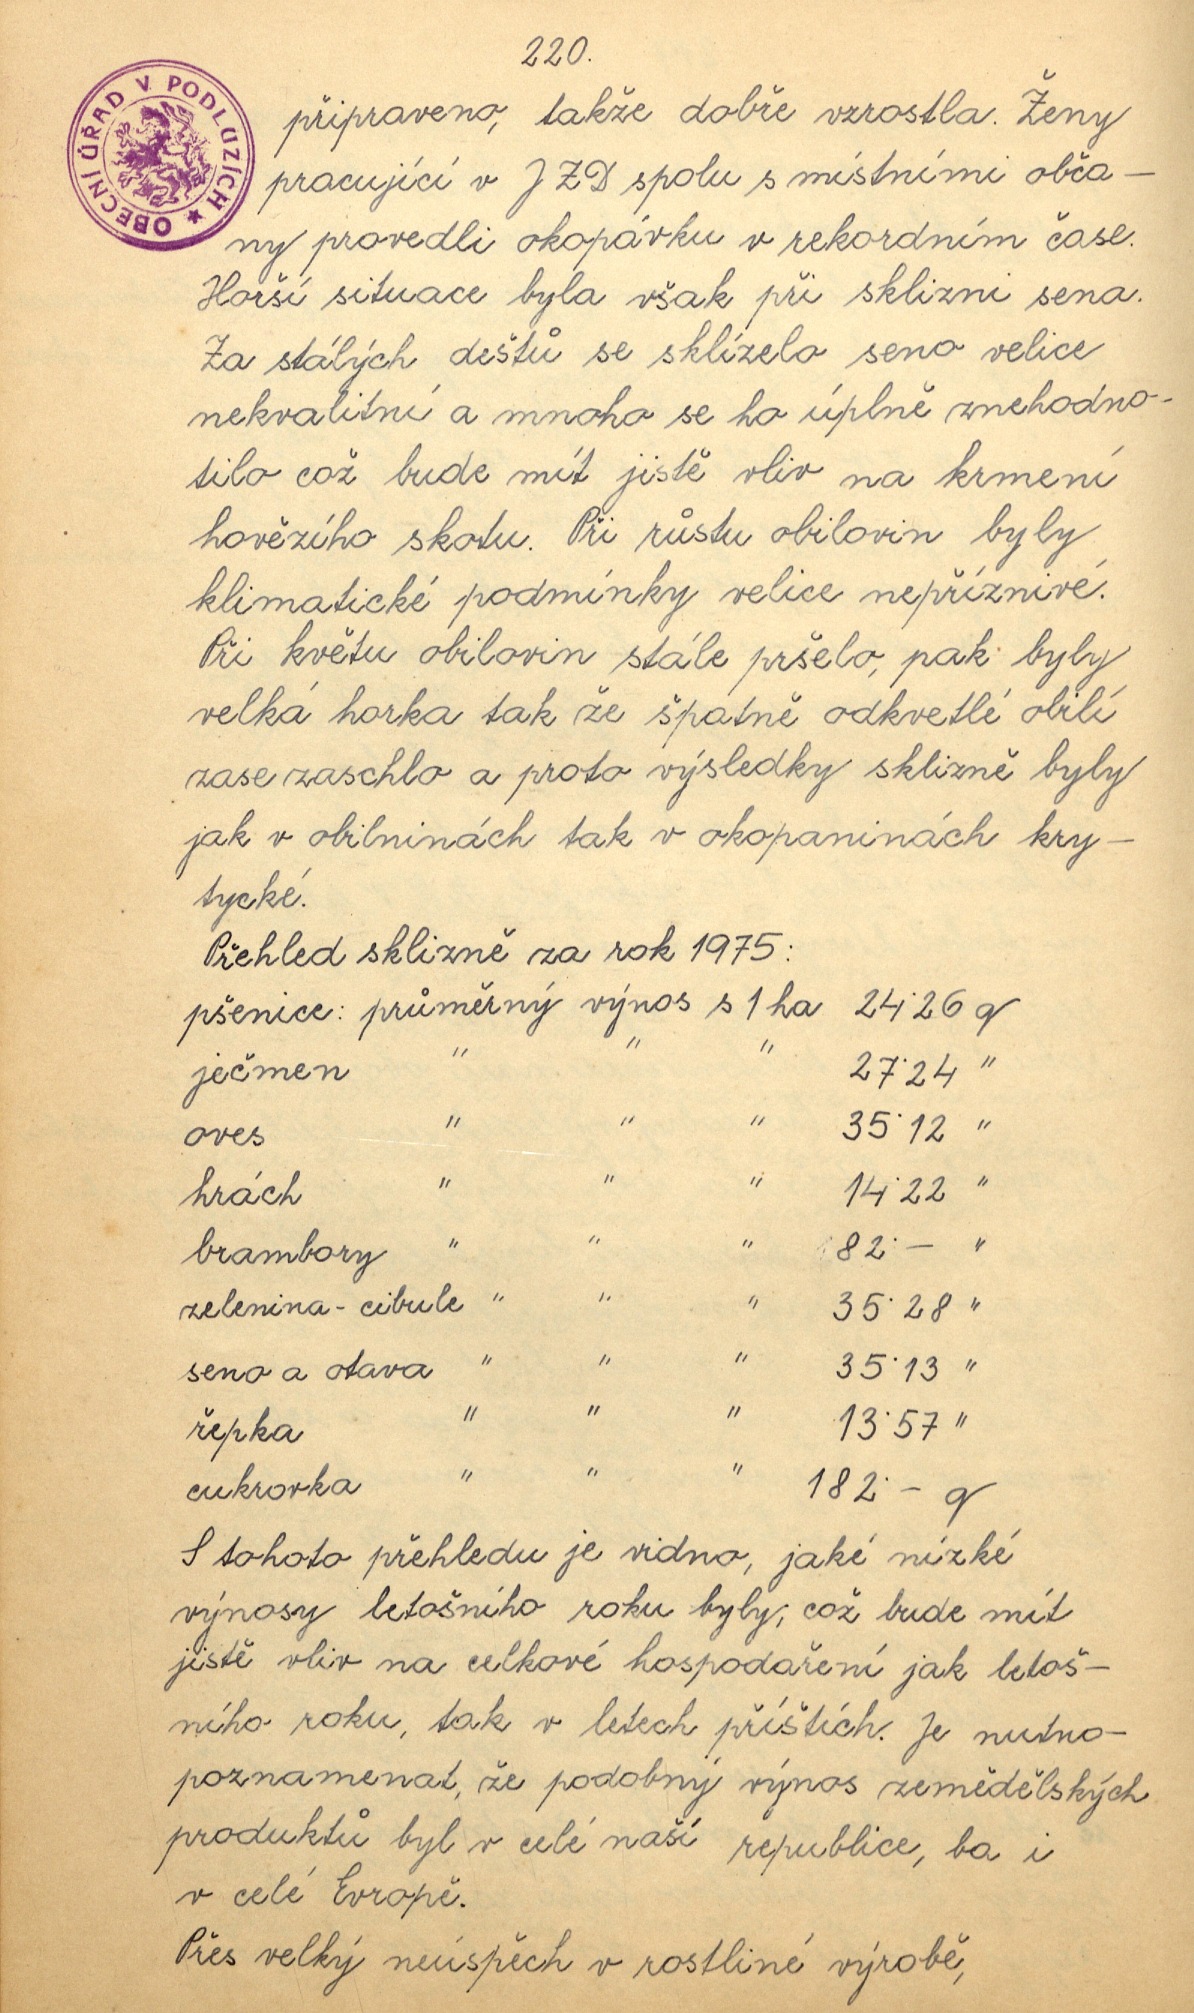 220.
OBECNÍ ÚŘAD V PODLUZÍCH ★
připraveno, takže dobře vzrostla. Ženy
pracující v JZD spolu s místními obča-
ny provedli okopávku v rekordním čase.
Horší situace byla však při sklizni sena.
Za stálých deštů se sklízelo seno velice
nekvalitní a mnoho se ho úplně znehodno-
tilo což bude mít jistě vliv na krmení
hovězího skotu. Při růstu obilovin byly
klimatické podmínky velice nepříznivé.
Při květu obilovin stále pršelo, pak byly
velká horka tak že špatně odkvetlé obilí
zase zaschlo a proto výsledky sklizně byly
jak v obilninách tak v okopaninách kry-
tycké.
Přehled sklizně za rok 1975:
pšenice: průměrný výnos s 1 ha 24˙26 q
ječmen " " " 27˙24 "
oves " " " 35˙12 "
hrách " " " 14˙22 "
brambory " " " 82˙- "
zelenina - cibule " " " 35˙28 "
seno a otava " " " 35˙13 "
řepka " " " 13˙57 "
cukrovka " " " 182˙- q
S tohoto přehledu je vidno, jaké nízké
výnosy letošního roku byly, což bude mít
jistě vliv na celkové hospodaření jak letoš-
ního roku, tak v letech příštích. Je nutno-
poznamenat, že podobný výnos zemědělských
produktů byl v celé naší republice, ba i
v celé Evropě.
Přes velký neúspěch v rostliné výrobě,